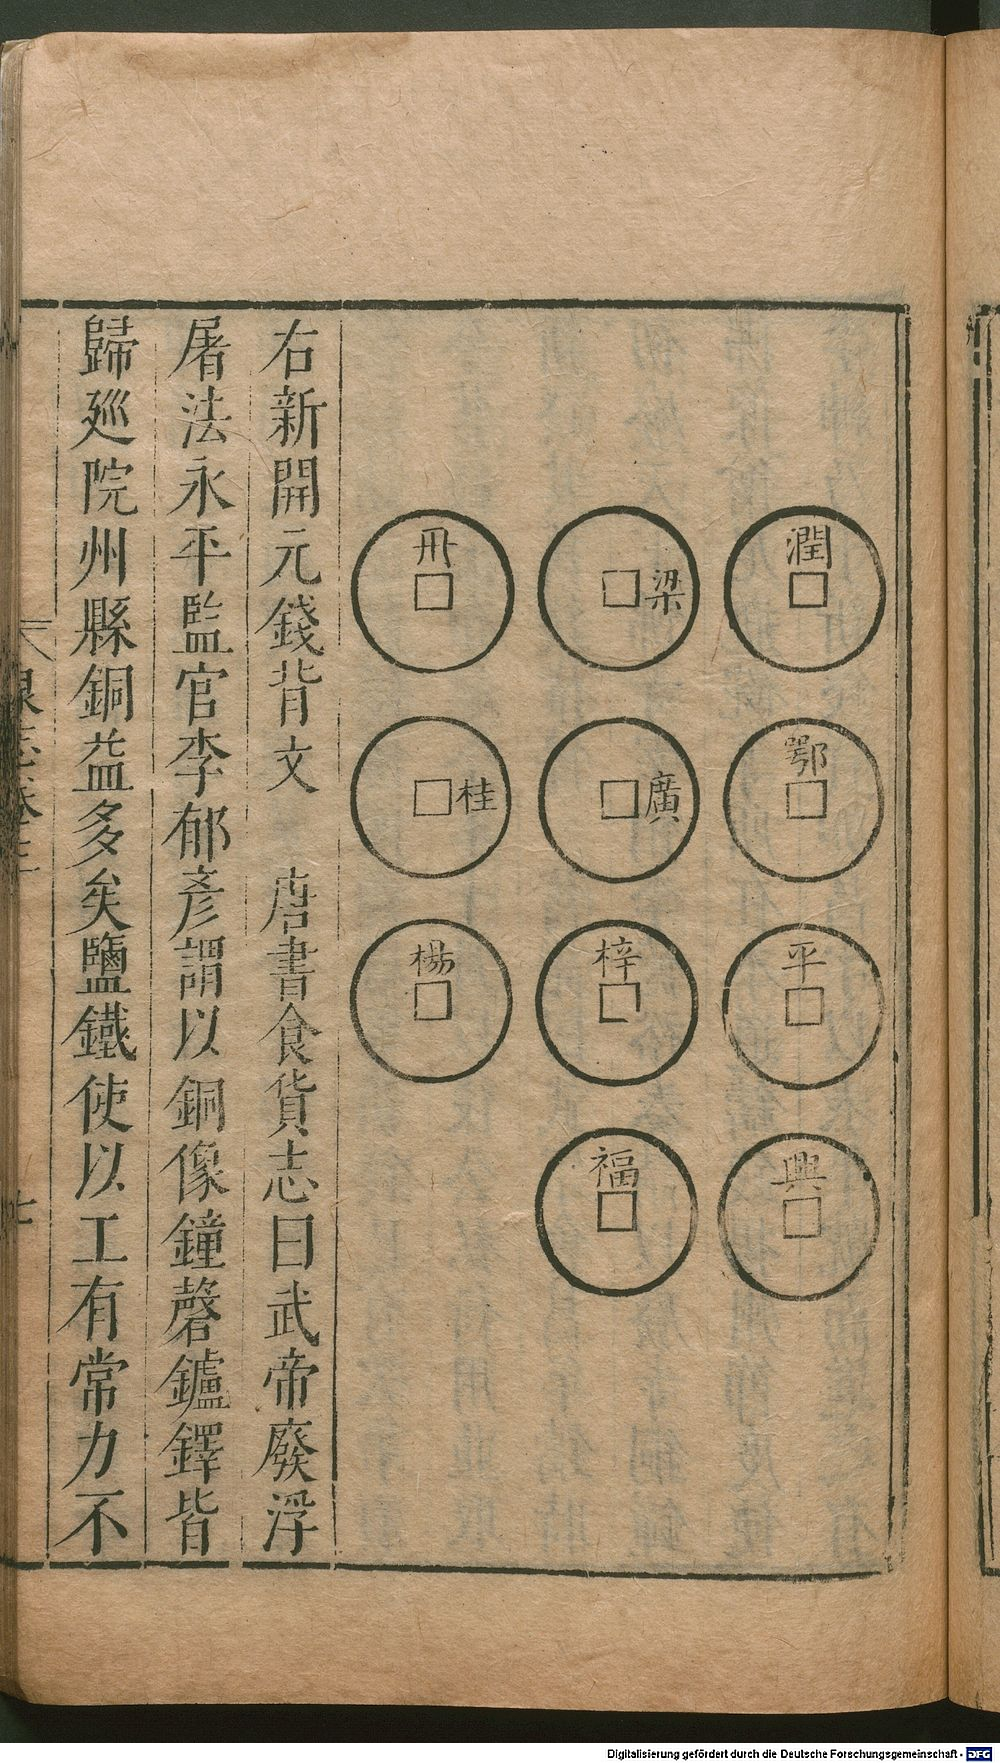 潤
鄂
平
興
梁
廣
梓
福
冊
桂
楊
右新開元錢背文　唐書食貨志曰武帝廢浮
屠法永平監官李郁彥謂以銅像鐘磬鑪鐸皆
歸廵院州縣銅益多矣鹽鐵使以工有常力不
Digitalisierung gefördert durch die Deutsche Forschungsgemeinschaft - DFG